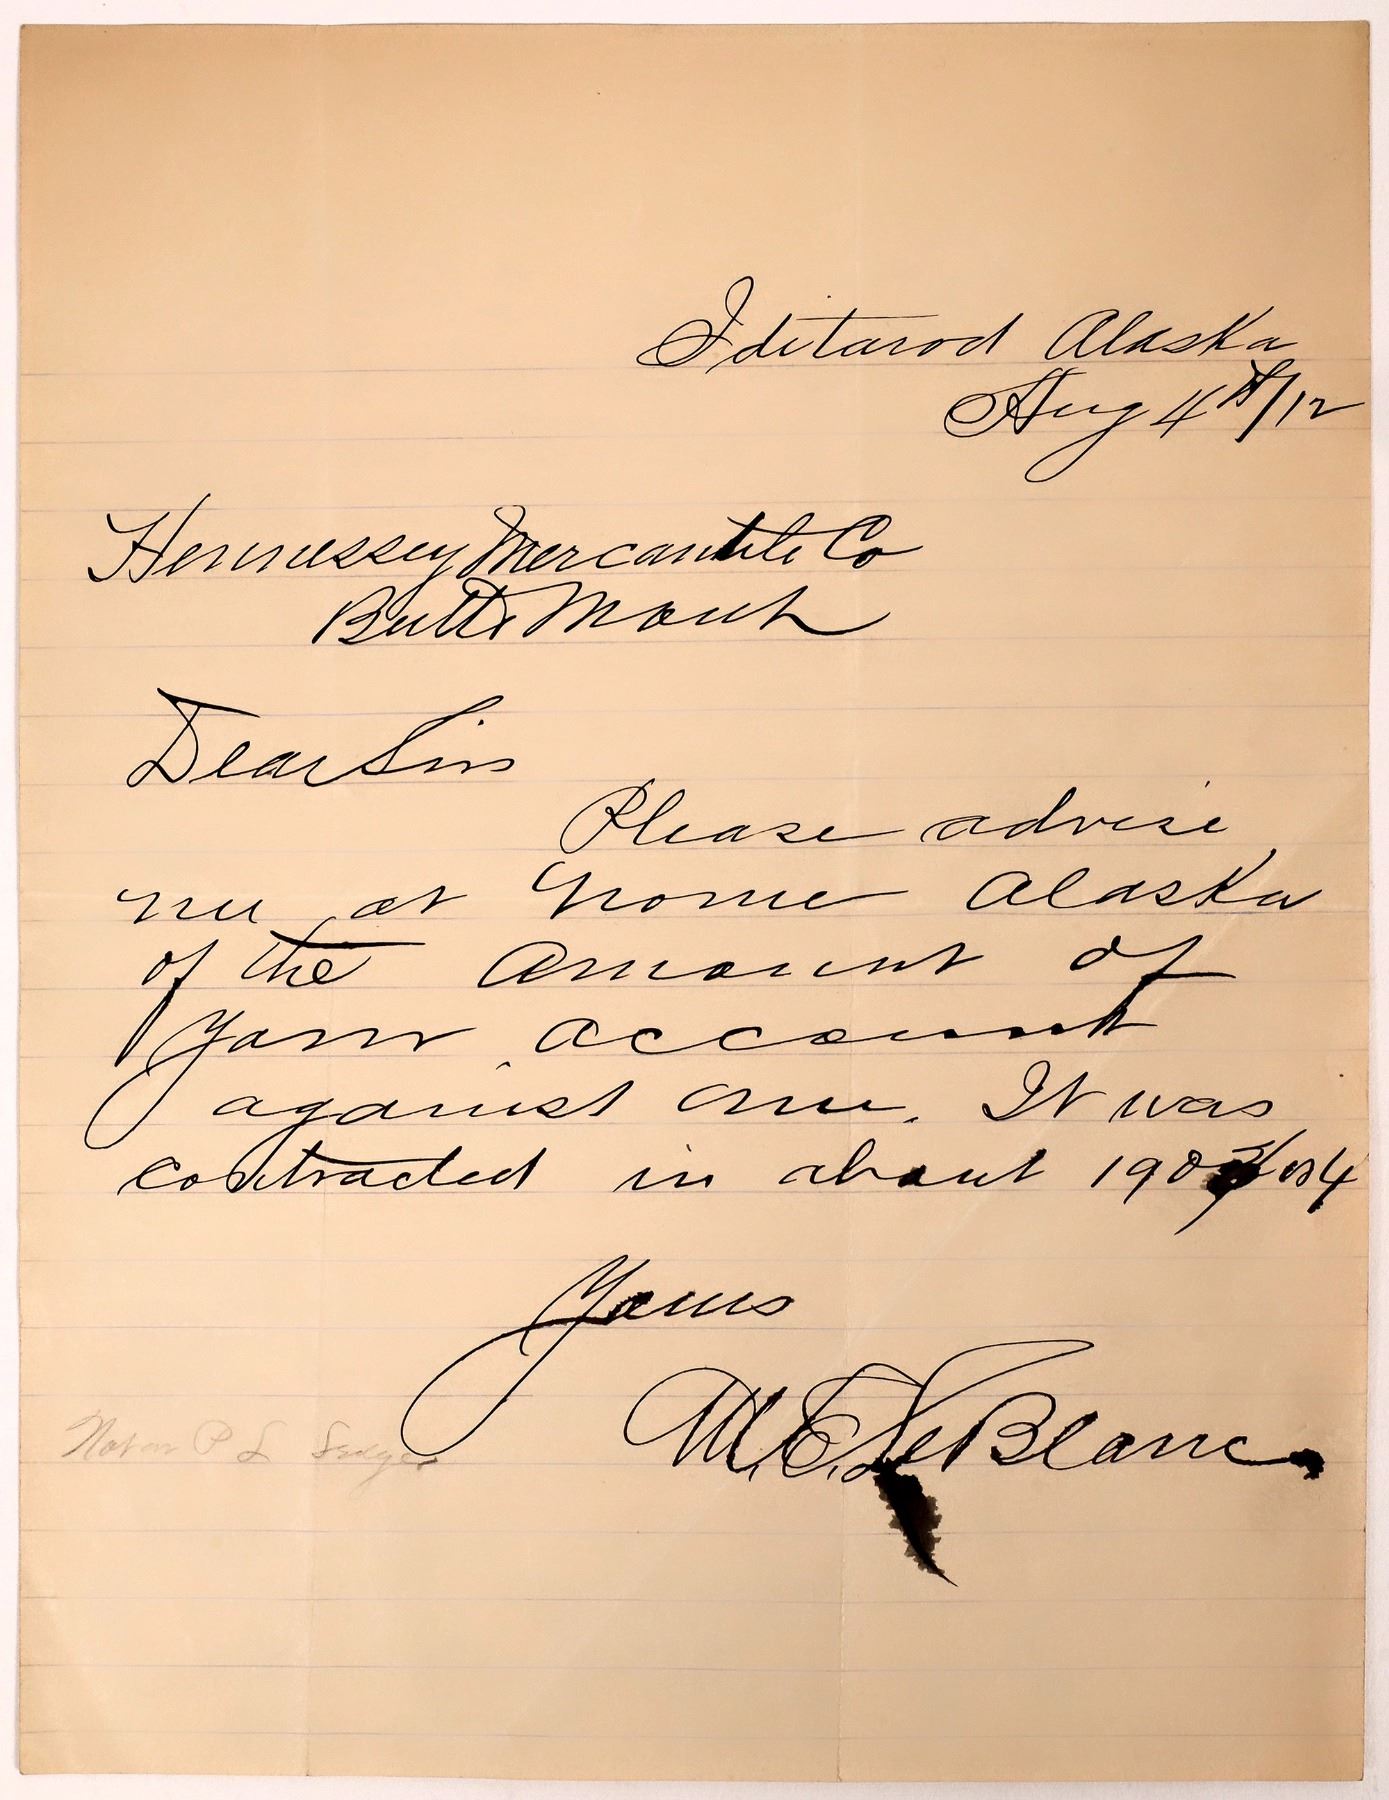 Iditarod Alaska
Aug 4th/12
Hennessey Mercantile Co
Butte Mont
Dear Sirs
Please advise
me at Nome Alaska
of the amount of
your account
against me. It was
contracted in about 1903 or 4
Yours
M. E. LeBlanc.
Not on P L Ledger